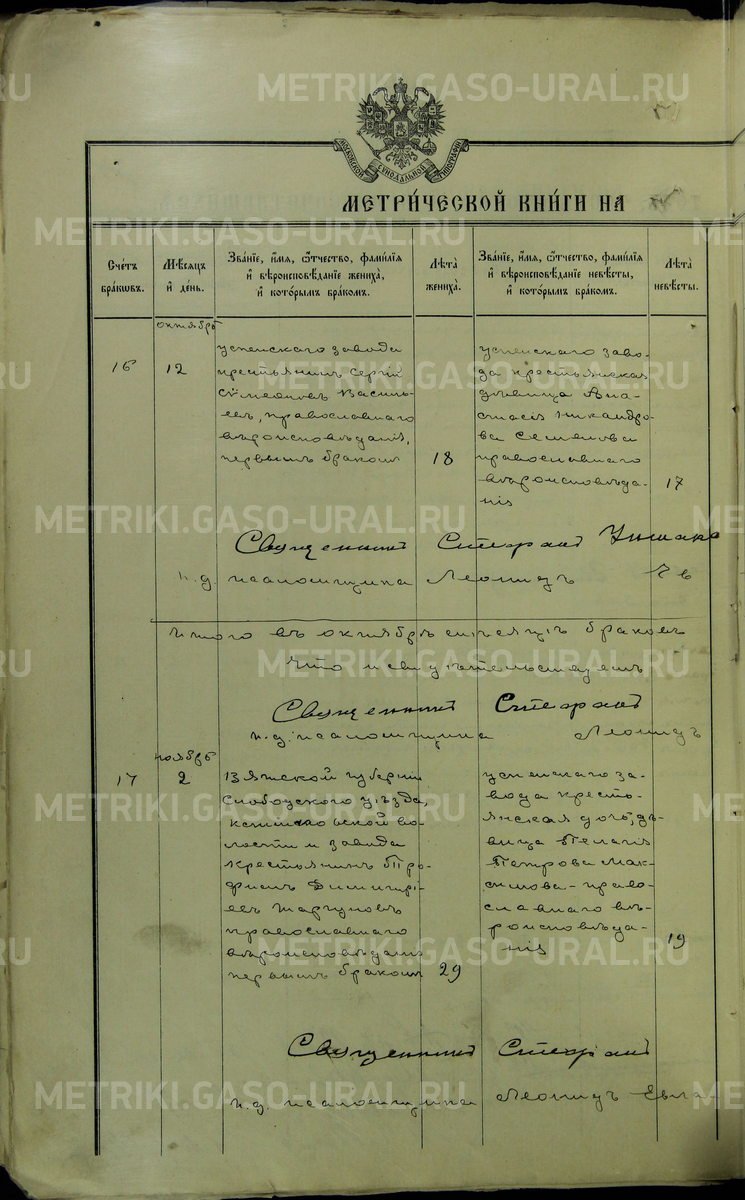 METRIKI.GASO-URAL.RU
МОСКОВСКОЙ СѴНОДАЛЬНОЙ ТИПОГРАФІИ
МЕТРИ́ЧЕСКОЙ КНИ́ГИ НА
Сче́тъ бра́кѡвъ.
Мѣ́сяцъ и҆ де́нь.
Зва́нїе, и҆́мя, ѻ҆́тчество, фами́лїя и҆ вѣроисповѣ́данїе жениха̀, и҆ кото́рымъ бра́комъ.
Лѣ́та жениха̀.
Зва́нїе, и҆́мя, ѻ҆́тчество, фами́лїя и҆ вѣроисповѣ́данїе невѣ́сты, и҆ кото́рымъ бра́комъ.
Лѣ́та невѣ́сты.
октябрь
16
12
Успенскаго завода
крестьянинъ Сергій
Сѵмеоновъ Василь-
евъ, православнаго
вѣроисповѣданія,
первымъ бракомъ
18
Успенскаго заво-
да крестьянская
дѣвица Ана-
стасія Никандро-
ва Семенова
православнаго
вѣроисповѣда-
нія
17
Священникъ Стефанъ
и.д. псаломщика Леонидъ
Итого въ октябрѣ мѣсяцѣ браковъ
Что и свидѣтельствуемъ
Священникъ Стефанъ
и.д. псаломщика Леонидъ
ноябрь
17
2
Вятской губерніи
Слободского уѣзда,
во-
лости и завода
крестьянинъ Тро-
фимъ Димитрі-
евъ
православнаго
вѣроисповѣданія
первымъ бракомъ
29
Успенскаго за-
вода кресть-
янская дочь, дѣ-
вица Пелагія
Петрова Мак-
симова - право-
славнаго вѣ-
роисповѣда-
нія
19
Священникъ Стефанъ
и.д. псаломщика Леонидъ